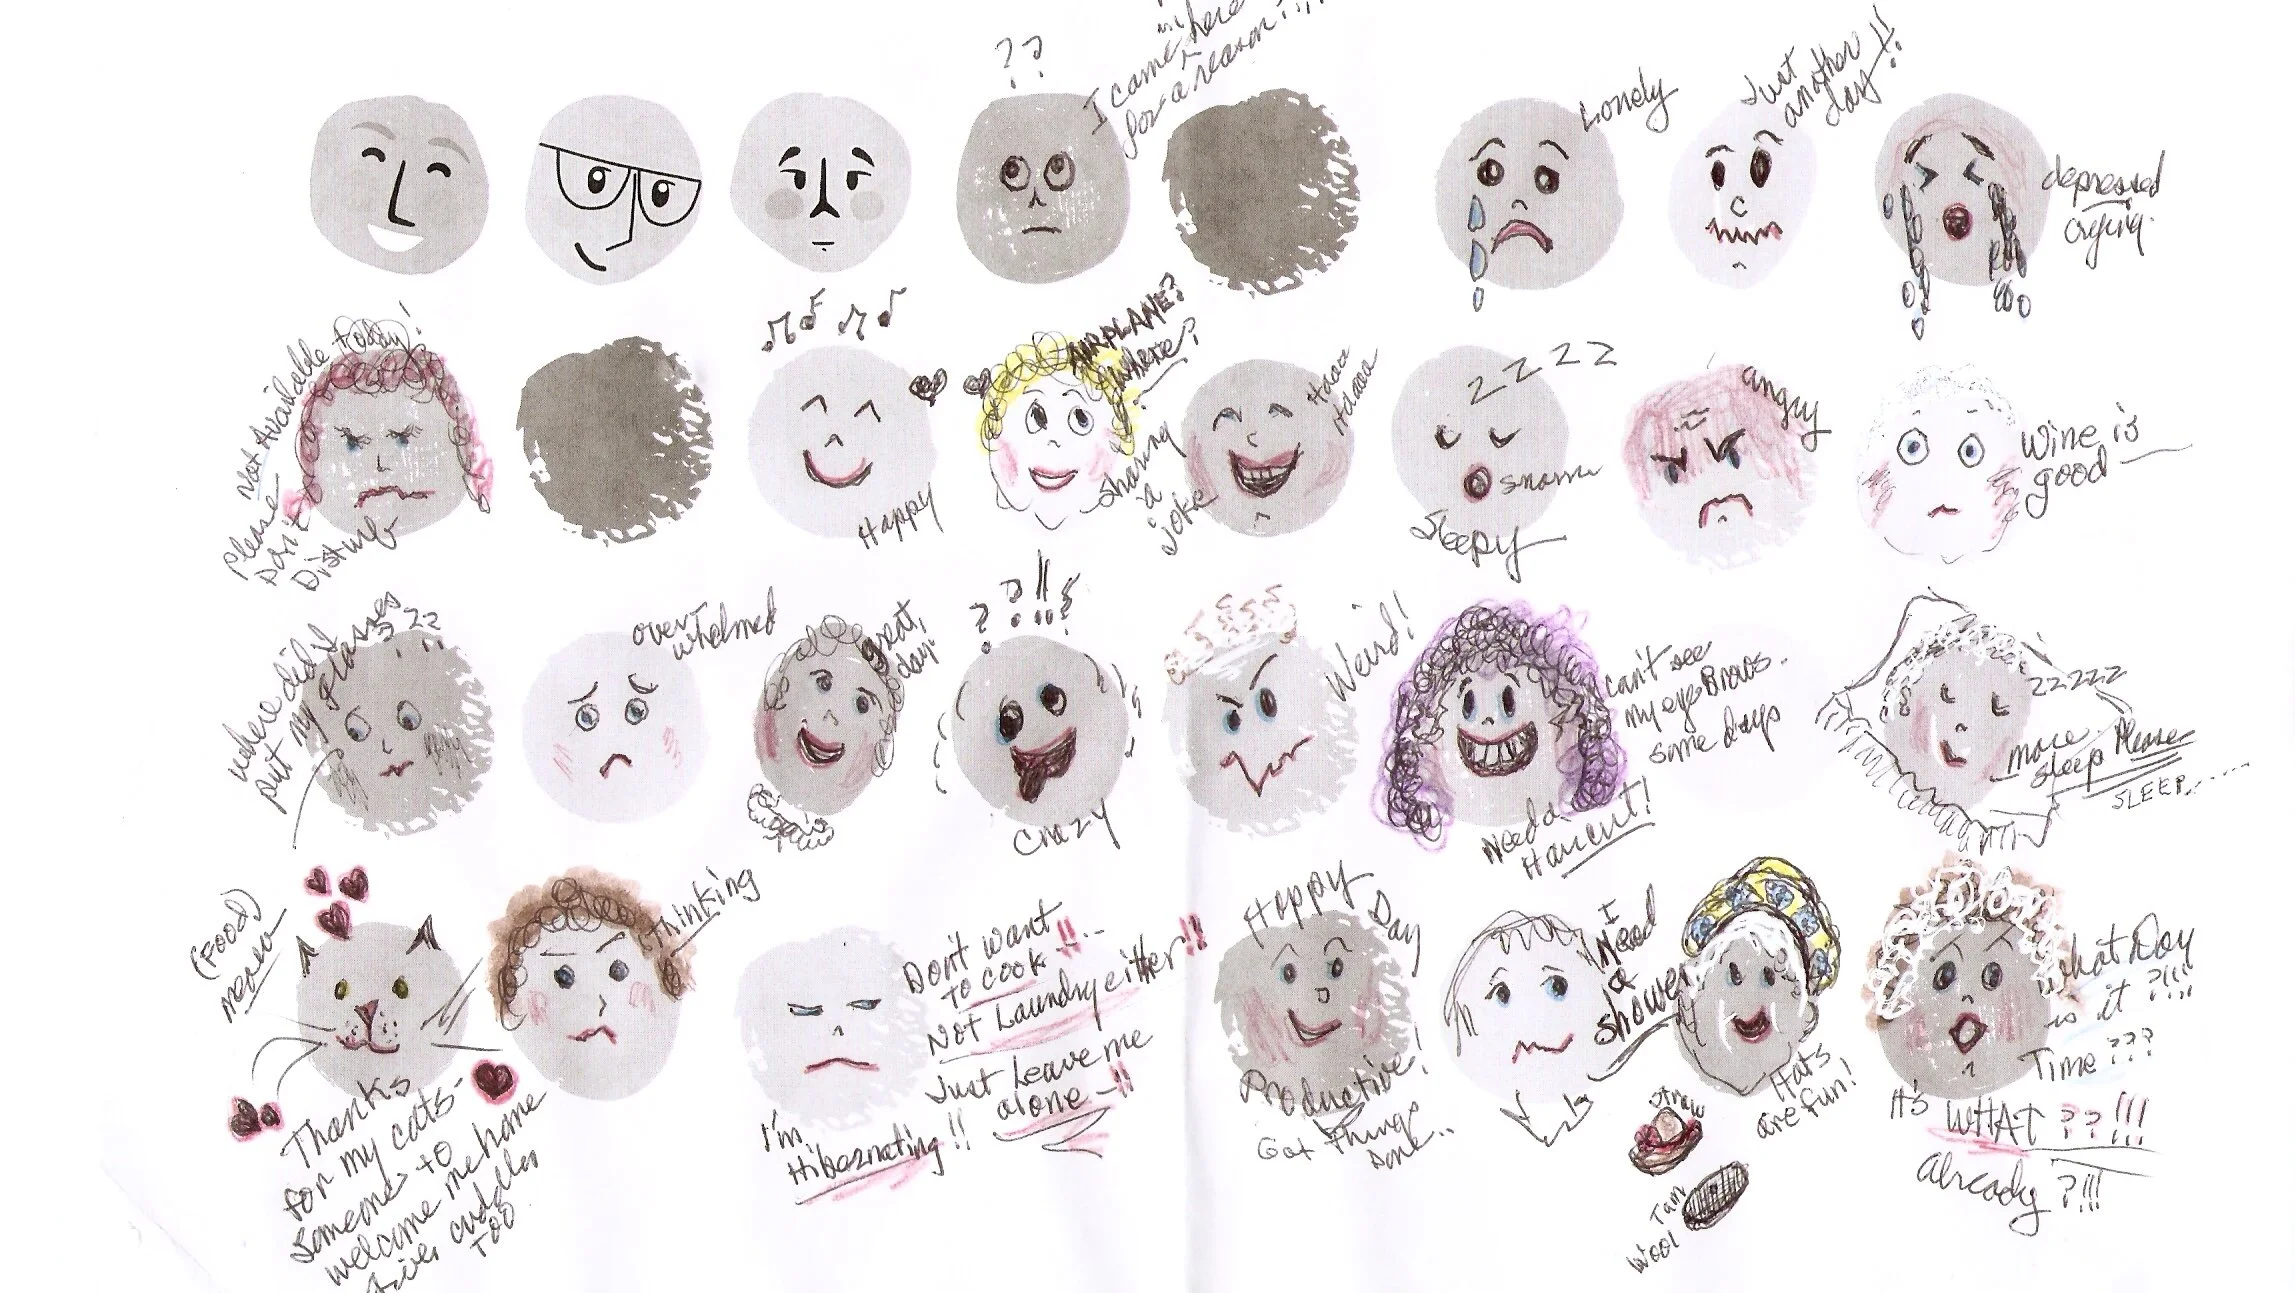 ??
I came in here
for a reason!!!!
Lonely
Just
another
day!!
depressed
crying.
Not Available today!
Please
Don't
Disturb
Happy
AIRPLANE?
Where?
sharing
a
joke
Haaa
Haaaa
ZZZZ
Sleepy
angry
Wine is
good
where did I
put my glasses
???
over
whelmed
great
day!
? ? !! ?
Crazy
Weird!
can't see
my eyeBrows
some days
Need a
Haircut!
zzzzz
more
sleep Please
SLEEP......
(FOOD)
meow
Thanks
for my cats-
Someone to
welcome me home
Gives cuddles
too
thinking
I'm
Hibernating!!
Don't want
to cook!!...
Not Laundry either!!
Just Leave me
alone-!!
Happy
Day
Productive!
Got Things
Done..
I
Need
a
shower
Hats
are fun!
Straw
Tam
Wool
What Day
is it ?!!!
Time ???
It's WHAT ??!!!
already ?!!!